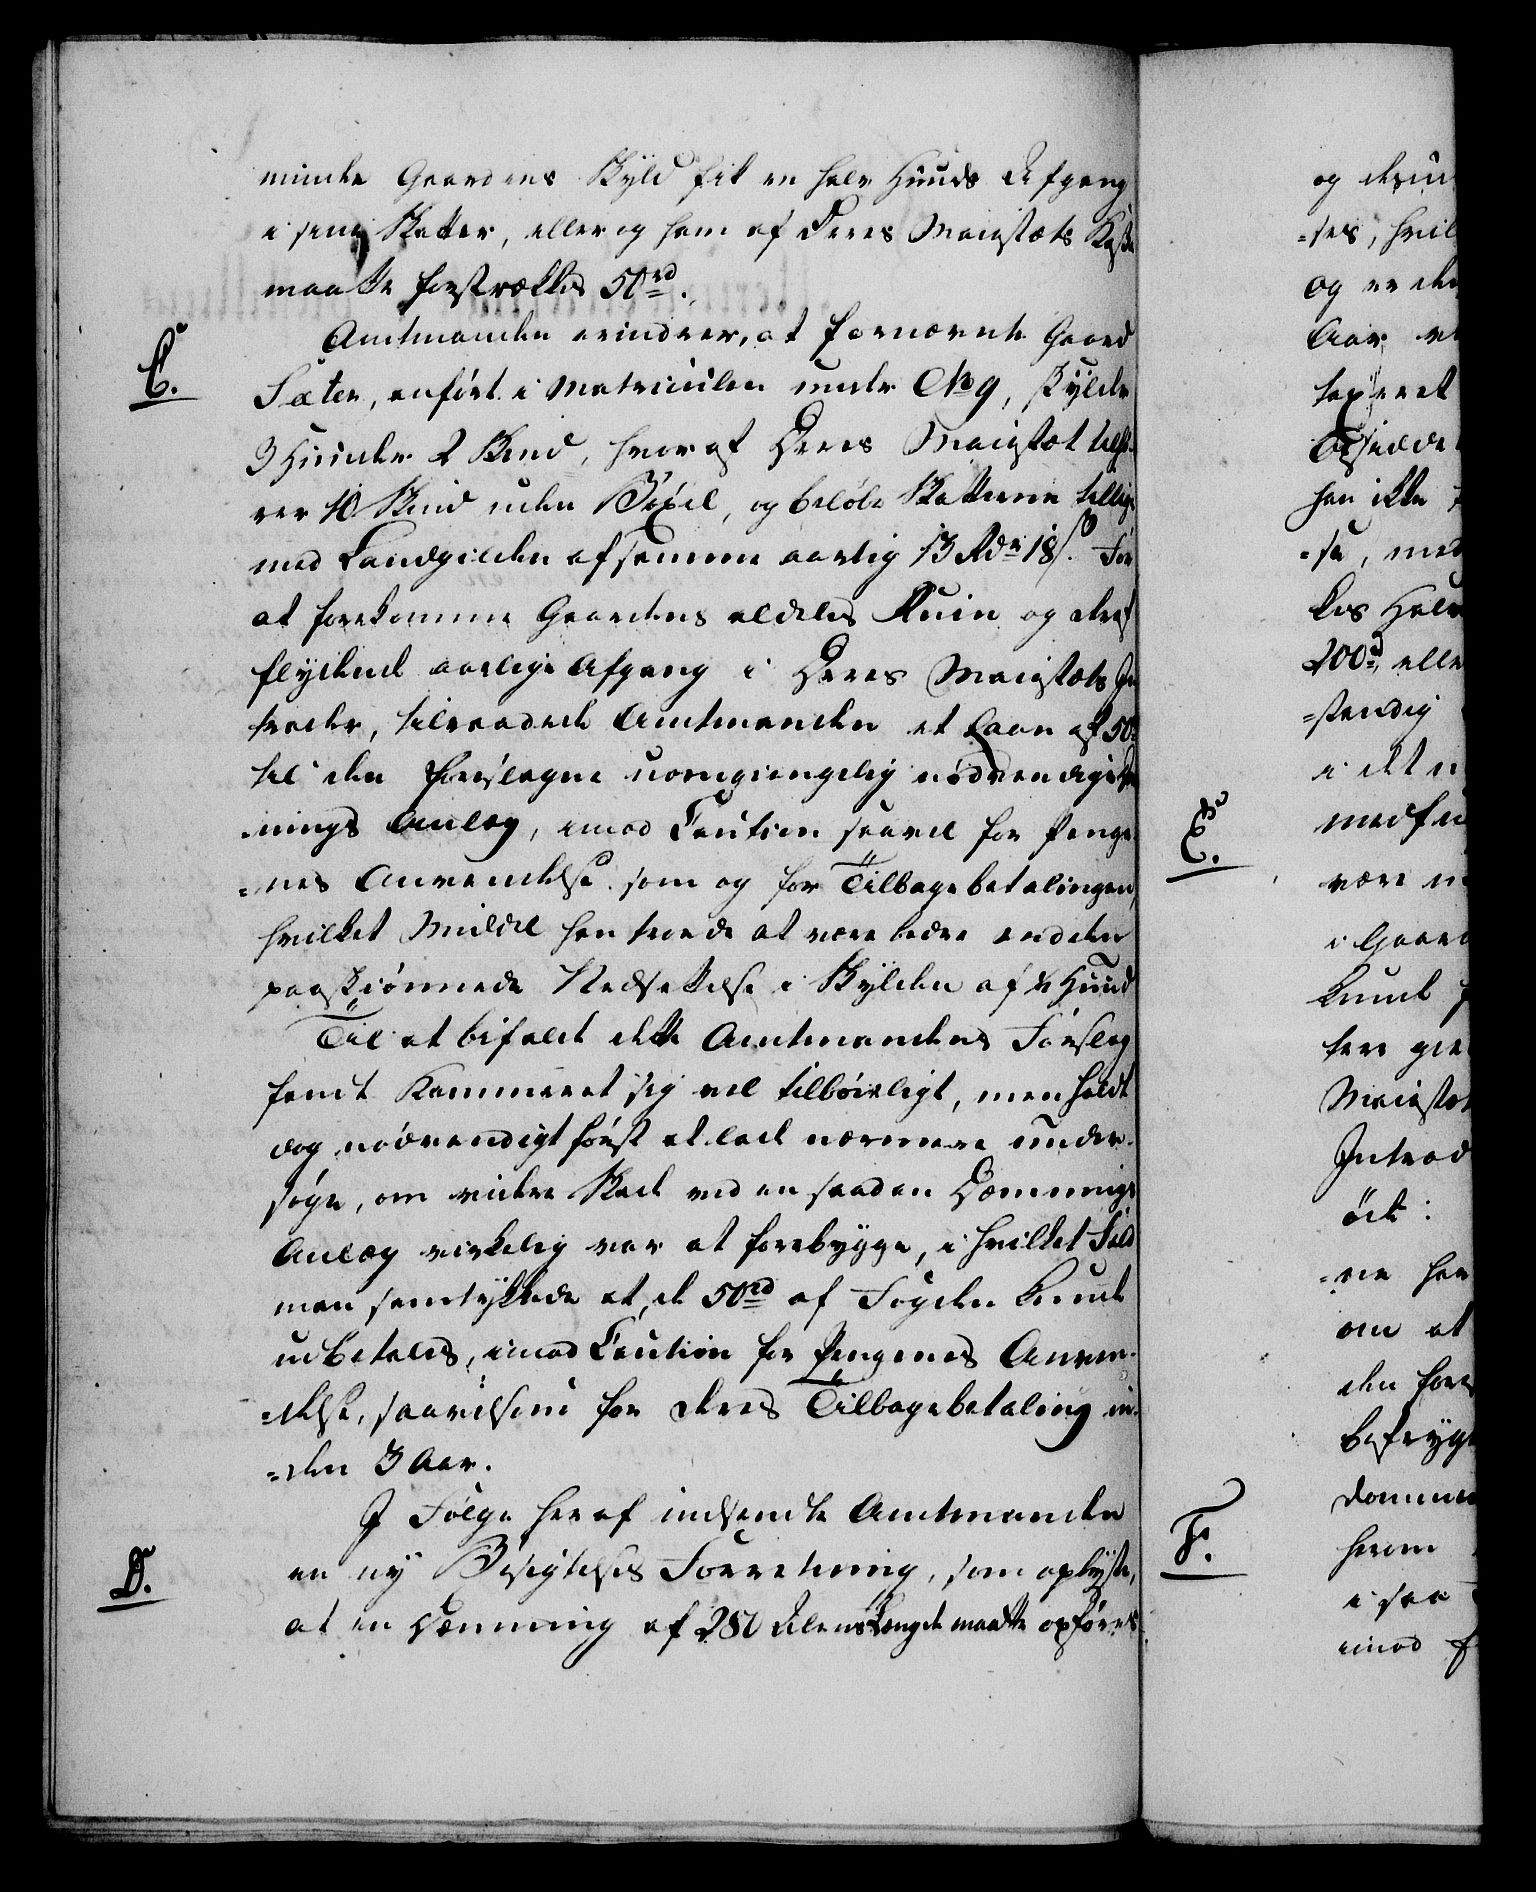 minde Gaardens Skyld fik en halv Huuds Afgang
i sine Skatter, eller og ham af Deres Maiestæts Kasse
maatte forstrækkes 50rd.
C.
Amtmanden erindrer, at fornævnte Gaard
Sæter, anført i Matriculen under No 9, skylder
3 Huuder 2 Skind, hvoraf Deres Maiestæt tilhø-
rer 10 Skind uden Bøxel, og beløbe Skatterne tillige
med Landgilden af samme aarlig 13 Rdr 18 s. For
at forekomme Gaardens aldeles Ruin og deraf
flydende aarlige Afgang i Deres Maiestæts In
trader, tilraadede Amtmanden et Laan af 50rd
til den foreslagne uomgiengelig nødvendige
nings Anlæg, imod Caution saavel for Penge
=nes Anvendelse som og for Tilbagebetalingen,
hvilket Middel han troede at være bedre end den
paaskiønnede Nedsettelse i Skylden af ½ Huud
Til at bifalde dette Amtmandens Forslag
fandt Kammeret sig vel tilbøieligt, men holdt
dog nødvendigt først at lade nærmere under-
søge, om videre Skade ved en saadan Dæmnings
Anlæg virkelig var at forebygge, i hvilket Fald
man samtykkede at de 50rd af Fogden kunde
udbetales, imod Caution for Pengenes Anven-
=delse, saavelsom for deres Tilbagebetaling in-
=den 3 Aar.
D.
I Følge heraf indsendte Amtmanden
en ny Besigtelses Forretning, som oplyste,
at en Dæmning af 280 Alens Længde maatte opføres
og desu
=ses, hvil
og er de
Aar
taxeret
Opsidde
han ikke
=se, med
Halv
200rd, elle
=stændig
i det
E.
medfø
være
i Gaar
kunde
tere
Maiestæt
Intrad
øde:
=ne har
om at
den fore
befrygt
F.
Dommer
herom
i saa
imod